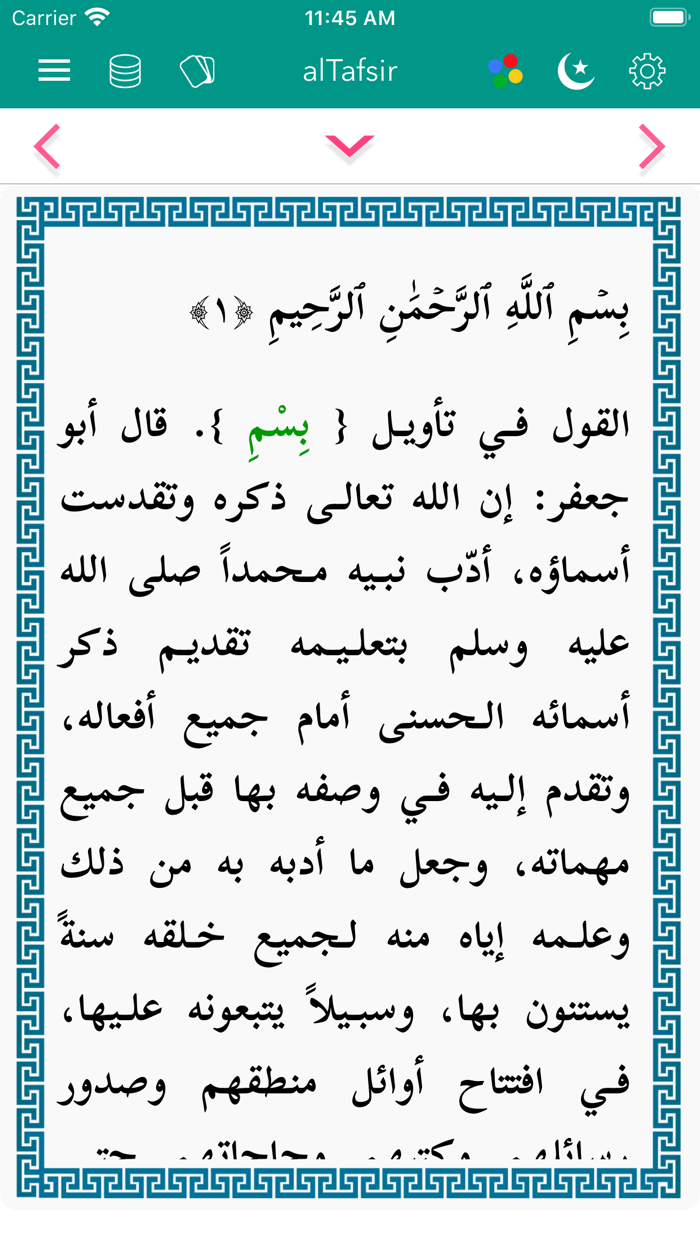 Carrier 11:45 AM
alTafsir
بِسۡمِ ٱللَّهِ ٱلرَّحۡمَٰنِ ٱلرَّحِيمِ ﴿١﴾
القول فـي تأويـل { بِسْمِ }. قال أبو
جعفر: إن الله تعالـى ذكره وتقدست
أسماؤه، أدّب نبـيه مـحمداً صلى الله
عليه وسلم بتعلـيـمه تقديـم ذكر
أسمائه الـحسنى أمام جميع أفعاله،
وتقدم إلـيه فـي وصفه بها قبل جميع
مهماته، وجعل ما أدبه به من ذلك
وعلـمه إياه منه لـجميع خـلقه سنةً
يستنون بها، وسبـيلاً يتبعونه علـيها،
فـي افتتاح أوائل منطقهم وصدور
رسائلهم وكتبهم وحاجاتهم حتـى